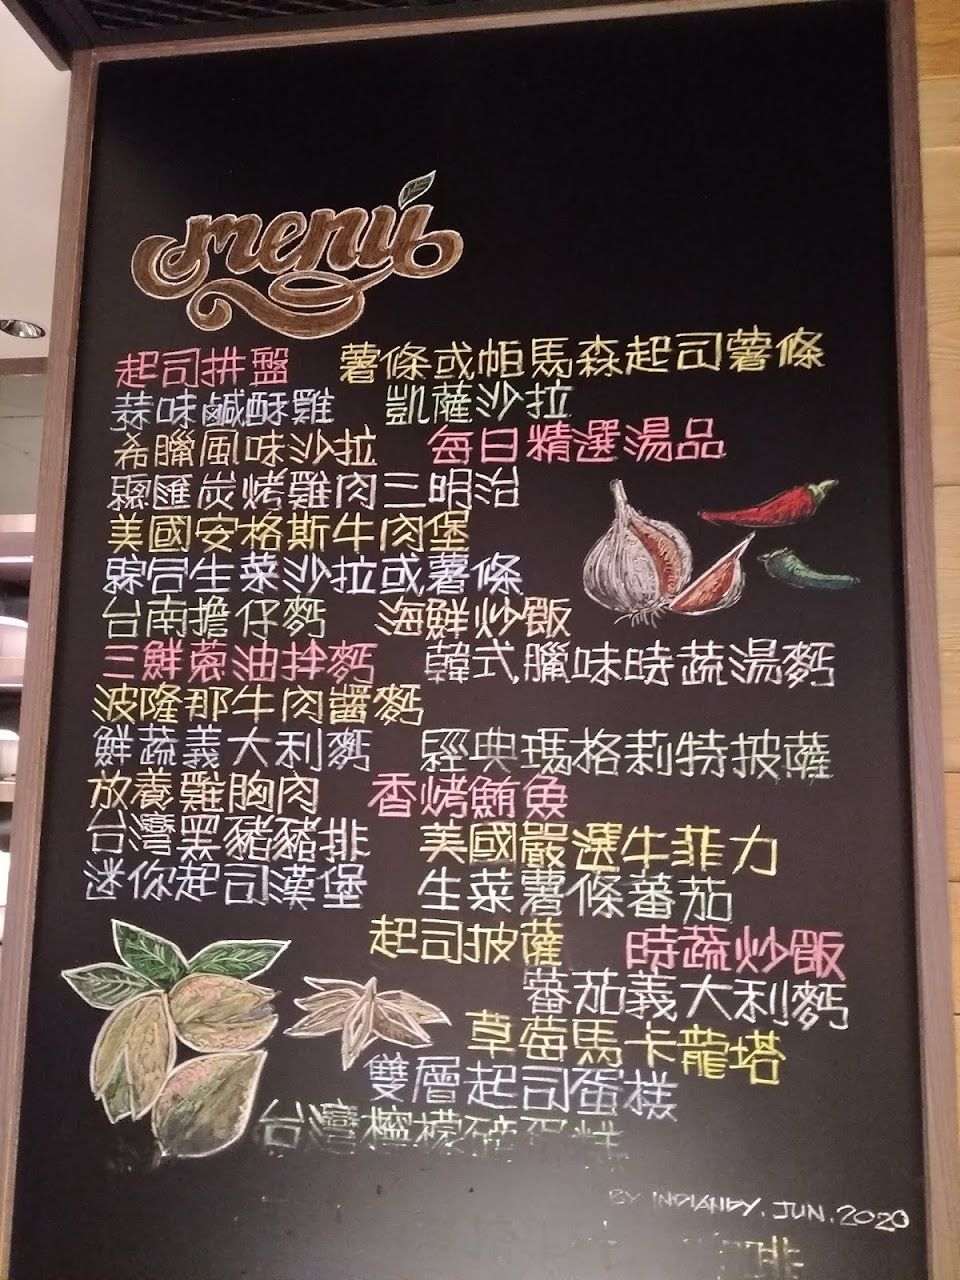 menu
起司拼盤 薯條或帕馬森起司薯條
蒜味鹹酥雞 凱薩沙拉
希臘風味沙拉 每日精選湯品
總匯炭烤雞肉三明治
美國安格斯牛肉堡
綜合生菜沙拉或薯條
台南擔仔麵 海鮮炒飯
三鮮蔥油拌麵 韓式臘味時蔬湯麵
波隆那牛肉醬麵
鮮蔬義大利麵 經典瑪格莉特披薩
放養雞胸肉 香烤鮪魚
台灣黑豬豬排 美國嚴選牛菲力
迷你起司漢堡 生菜薯條蕃茄
起司披薩 時蔬炒飯
蕃茄義大利麵
草莓馬卡龍塔
雙層起司蛋糕
台灣檸檬磅蛋糕
BY INDIANDY. JUN. 2020